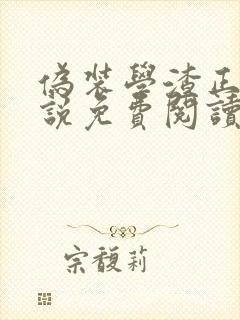 偽裝學渣正
說免費閱讀
宗馥莉